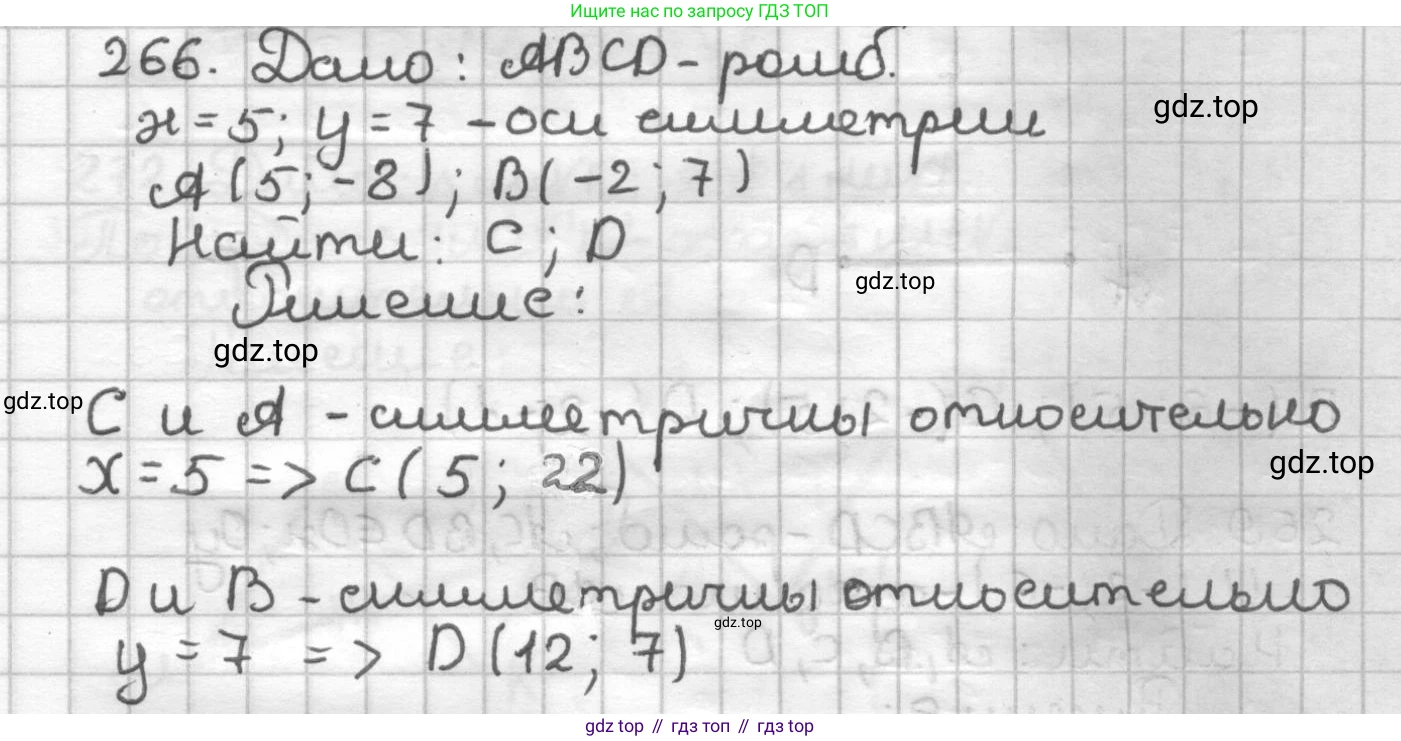 Ищите нас по запросу ГДЗ ТОП
266. Дано: ABCD - ромб.
x = 5; y = 7 - оси симметрии
gdz.top
A(5; -8); B(-2; 7)
Найти: C; D
gdz.top
Решение:
gdz.top
gdz.top
C и A - симметричны относительно
x = 5 => C(5; 22)
gdz.top
D и B - симметричны относительно
gdz.top
y = 7 => D(12; 7)
gdz top // гдз топ // гдз top